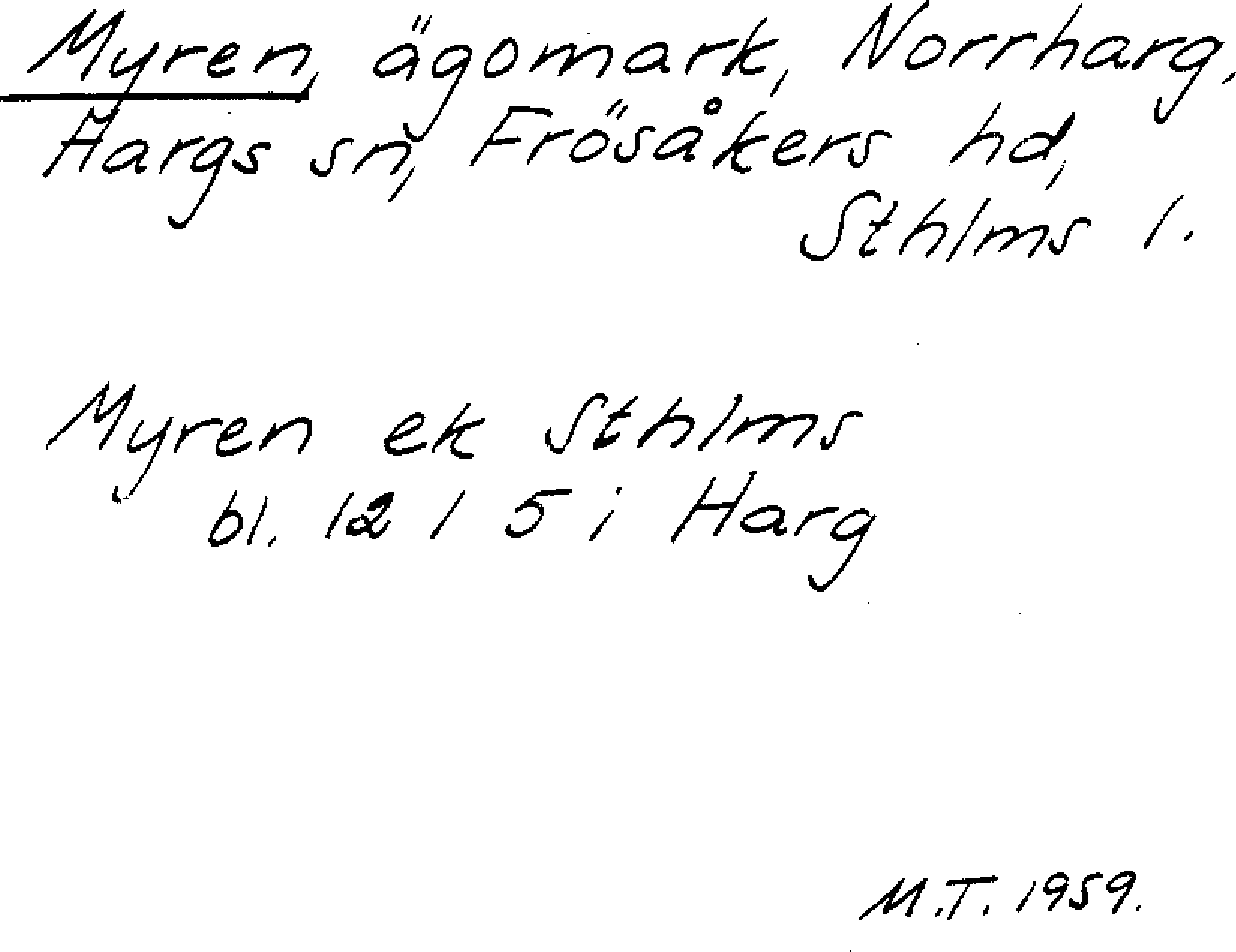 Myren, ägomark, Norrharg,
Hargs sn, Frösåkers hd,
Sthlms l.
Myren ek Sthlms
bl. 12 I 5 i Harg
M.T. 1959.